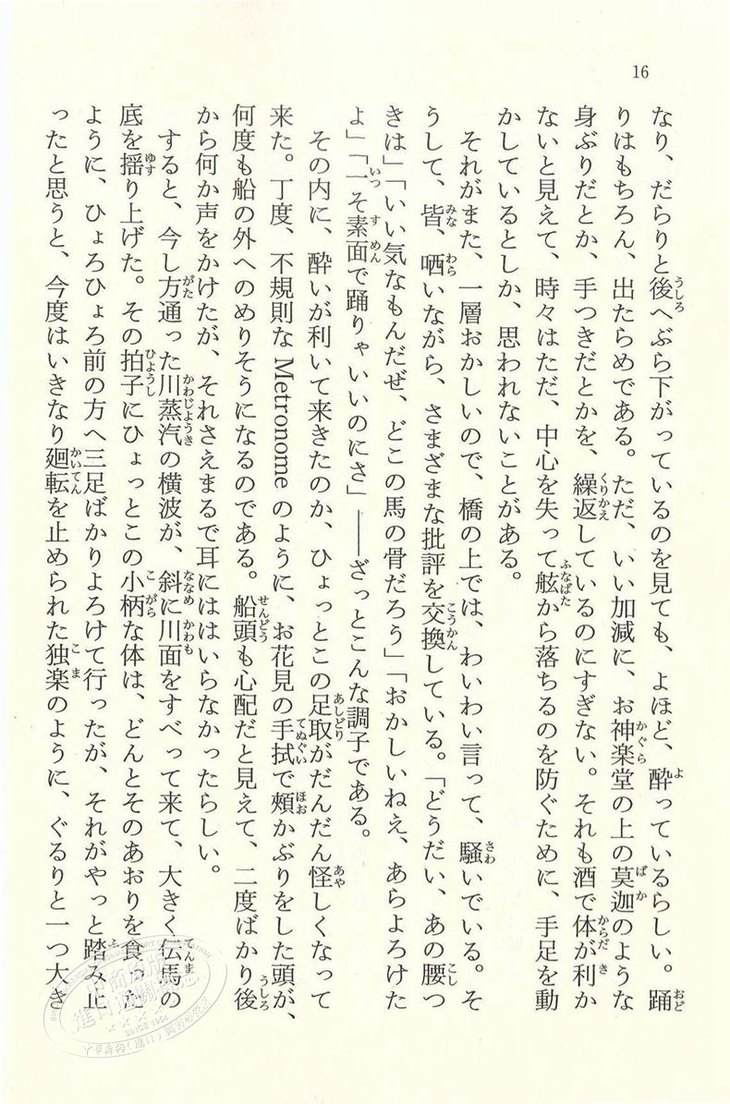 16
なり、だらりと後へぶら下がっているのを見ても、よほど、酔っているらしい。踊
りはもちろん、出たらめである。ただ、いい加減に、お神楽堂の上の莫迦のような
身ぶりだとか、手つきだとかを、繰返しているのにすぎない。それも酒で体が利か
ないと見えて、時々はただ、中心を失って舷から落ちるのを防ぐために、手足を動
かしているとしか、思われないことがある。
それがまた、一層おかしいので、橋の上では、わいわい言って、騒いでいる。そ
うして、皆、哂いながら、さまざまな批評を交換している。「どうだい、あの腰つ
きは」「いい気なもんだぜ、どこの馬の骨だろう」「おかしいねえ、あらよろけた
よ」「一そ素面で踊りゃいいのにさ」――ざっとこんな調子である。
その内に、酔いが利いて来きたのか、ひょっとこの足取がだんだん怪しくなって
来た。丁度、不規則な Metronome のように、お花見の手拭で頰かぶりをした頭が、
何度も船の外へのめりそうになるのである。船頭も心配だと見えて、二度ばかり後
から何か声をかけたが、それさえまるで耳にははいらなかったらしい。
すると、今し方通った川蒸汽の横波が、斜に川面をすべって来て、大きく伝馬の
底を揺り上げた。その拍子にひょっとこの小柄な体は、どんとそのあおりを食った
ように、ひょろひょろ前の方へ三足ばかりよろけて行ったが、それがやっと踏み止
ったと思うと、今度はいきなり廻転を止められた独楽のように、ぐるりと一つ大き